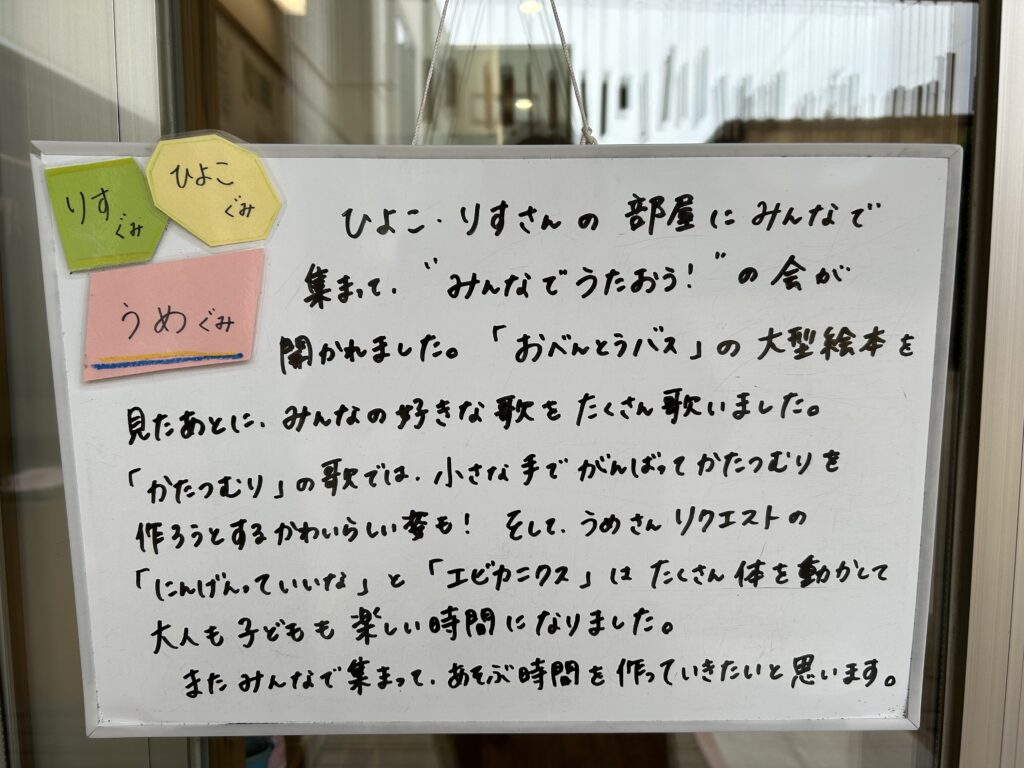 りす
ぐみ
ひよこ
ぐみ
うめぐみ
ひよこ・りすさんの 部屋に みんなで
集まって、"みんなでうたおう!"の会が
開かれました。「おべんとうバス」の大型絵本を
見たあとに、みんなの好きな歌をたくさん歌いました。
「かたつむり」の歌では、小さな手でがんばってかたつむりを
作ろうとするかわいらしい姿も! そして、うめさんリクエストの
「にんげんっていいな」と「エビカニクス」はたくさん体を動かして
大人も子どもも楽しい時間になりました。
またみんなで集まって、あそぶ時間を作っていきたいと思います。